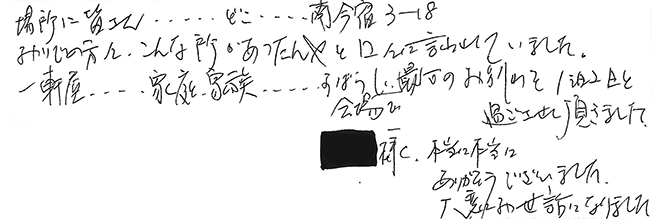 場所に皆さん.....どこ.....南今宿3-18
みの方々、こんな所があったんやと口々に言わせていました。
一軒屋.....家庭、家族.....すばらしい最高のお別れを1泊2日と
会場で 過ごさせて頂きました
様、本当に本当に
ありがとうございました。
大変お世話になりました